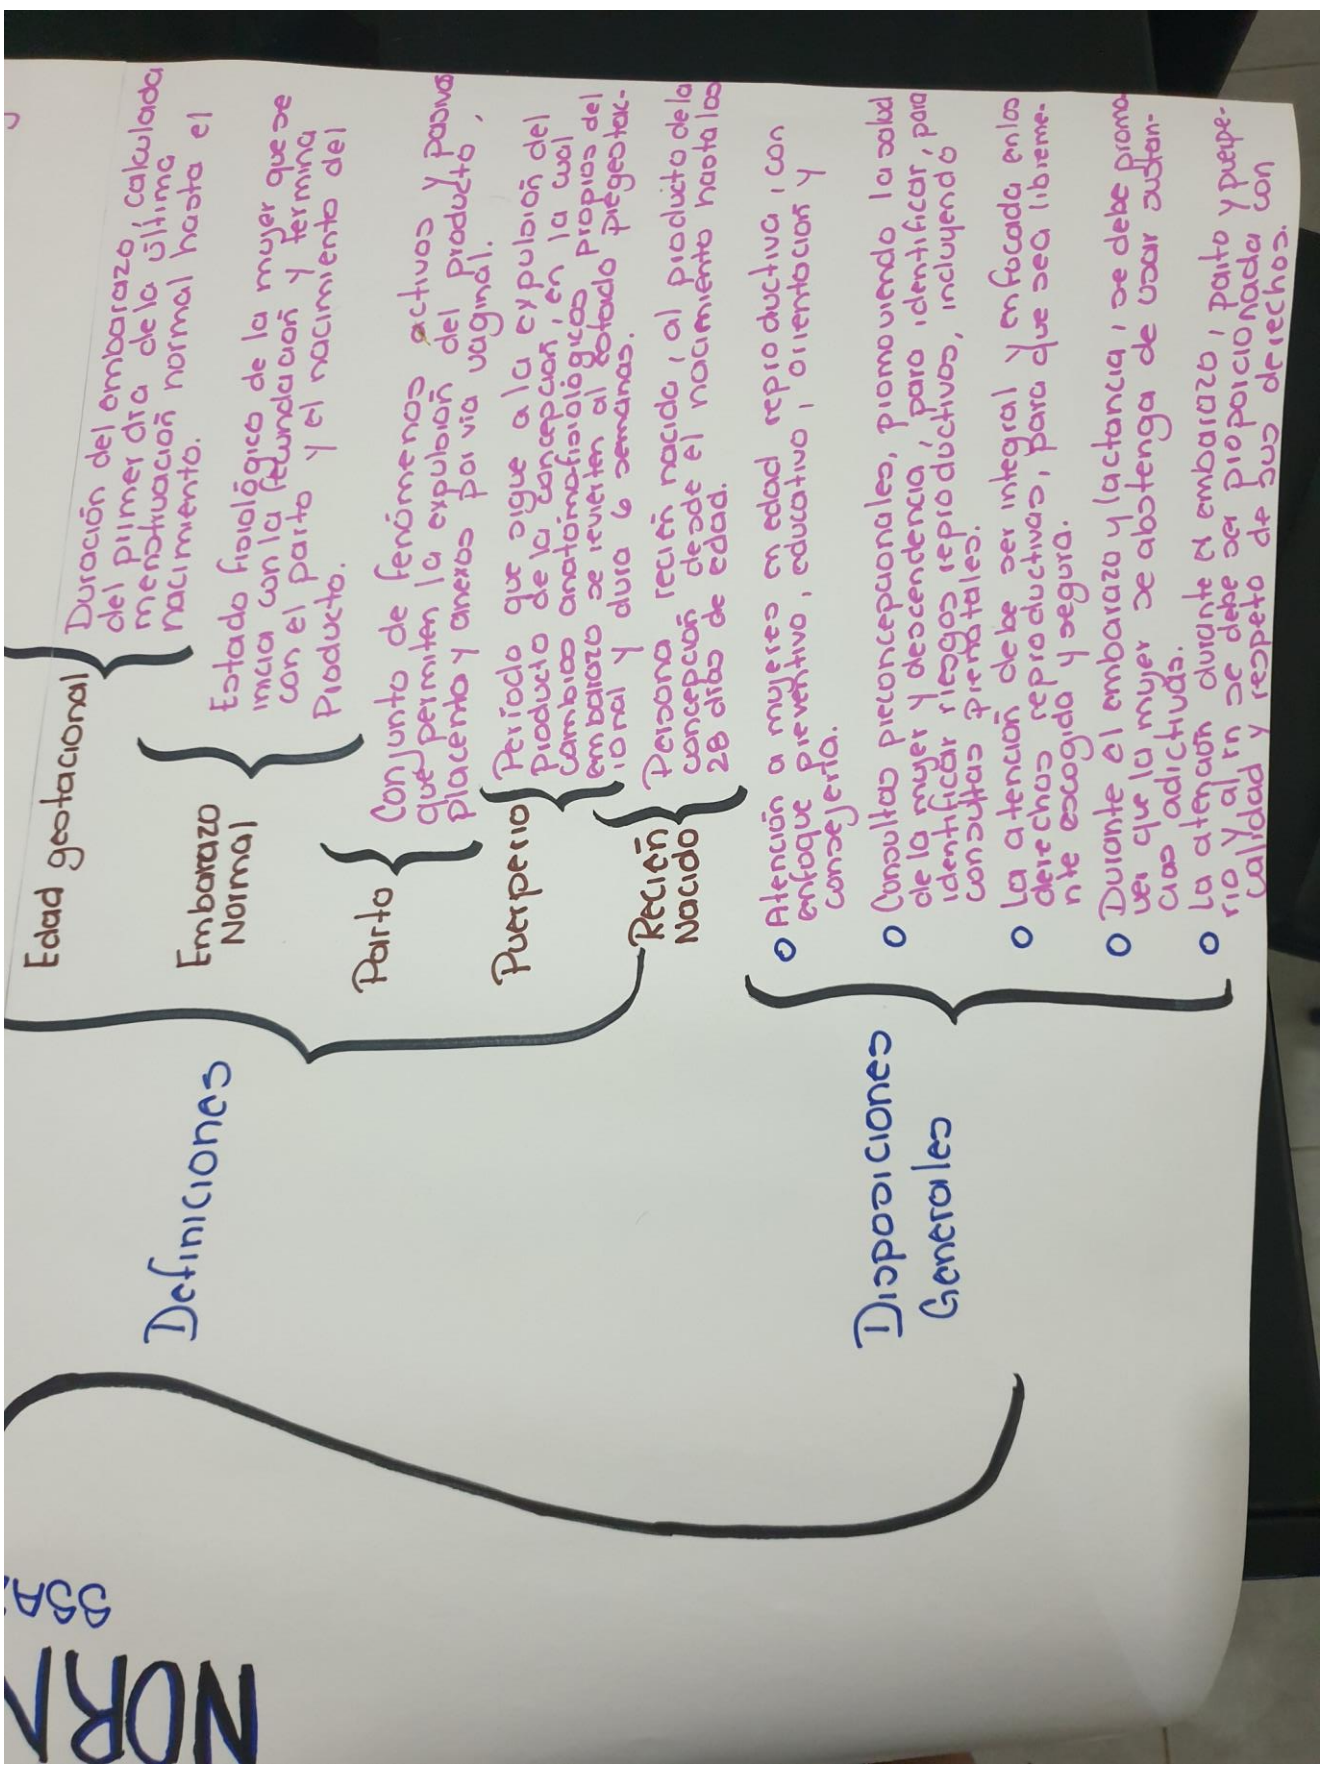 NOR
SSA
Definiciones
Edad gestacional
Duración del embarazo, calculada
del primer día de la última
menstruación normal hasta el
nacimiento.
Embarazo
Normal
Estado fisiológico de la mujer que se
inicia con la fecundación y termina
con el parto y el nacimiento del
Producto.
Parto
Conjunto de fenómenos activos y pasivos
que permiten la expulsión del producto,
placenta y anexos por vía vaginal.
Puerperio
Período que sigue a la expulsión del
producto de la concepción, en la cual
cambios anatomofisiológicos propios del
embarazo se revierten al estado pregestac-
ional y dura 6 semanas.
Recién
Nacido
Persona recién nacida, al producto de la
concepción desde el nacimiento hasta los
28 días de edad.
Disposiciones
Generales
Atención a mujeres en edad reproductiva, con
enfoque preventivo, educativo, orientación y
consejería.
Consultas preconcepcionales, promoviendo la salud
de la mujer y descendencia, para identificar, para
identificar riesgos reproductivos, incluyendo
consultas prenatales.
La atención debe ser integral y enfocada en los
derechos reproductivas, para que sea libreme-
nte escogida y segura.
Durante el embarazo y lactancia, se debe promo
ver que la mujer se abstenga de usar sustan-
cias adictivas.
La atención durante el embarazo, parto y puerpe-
rio y al rn se debe ser proporcionada con
calidad y respeto de sus derechos.